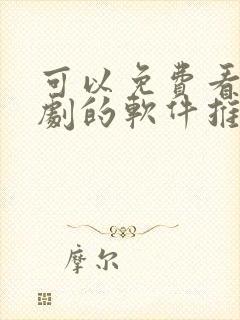 可以免费看
劇的軟件推
摩尔